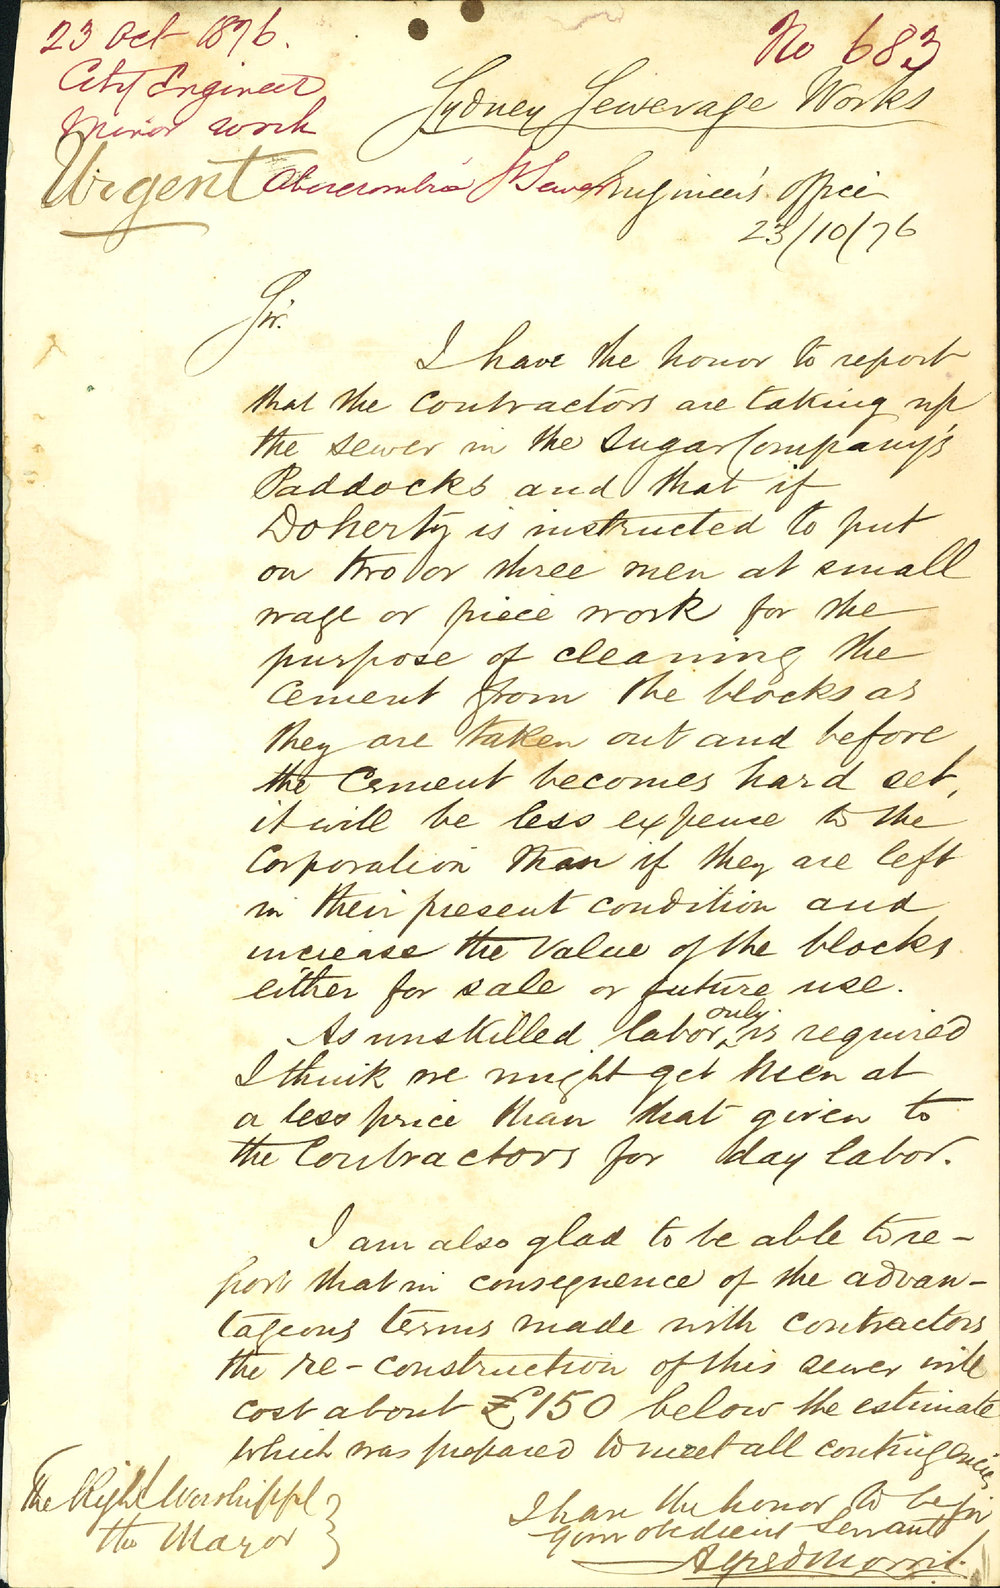 23 Oct 1876.
No 683
City Engineer
Minor work
Sydney Sewerage Works
Urgent
Abercrombie St Sewer
Engineer's Office
23/10/76
Sir.
I have the honor to report
that the Contractors are taking up
the sewer in the Sugar Company's
Paddocks and that if
Doherty is instructed to put
on two or three men at small
wage or piece work for the
purpose of cleaning the
Cement from the blocks as
they are taken out and before
the Cement becomes hard set,
it will be less expence to the
Corporation than if they are left
in their present condition and
increase the value of the blocks
either for sale or future use.
As unskilled labor only is required
I think we might get men at
a less price than that given to
the Contractors for day labor.
I am also glad to be able to re-
port that in consequence of the advan-
tageous terms made with contractors
the re-construction of this sewer will
cost about £150 below the estimate
which was prepared to meet all contingencies
I have the honor to be Sir
Your obedient Servant
Alfred Morris
The Right Worshipful
the Mayor